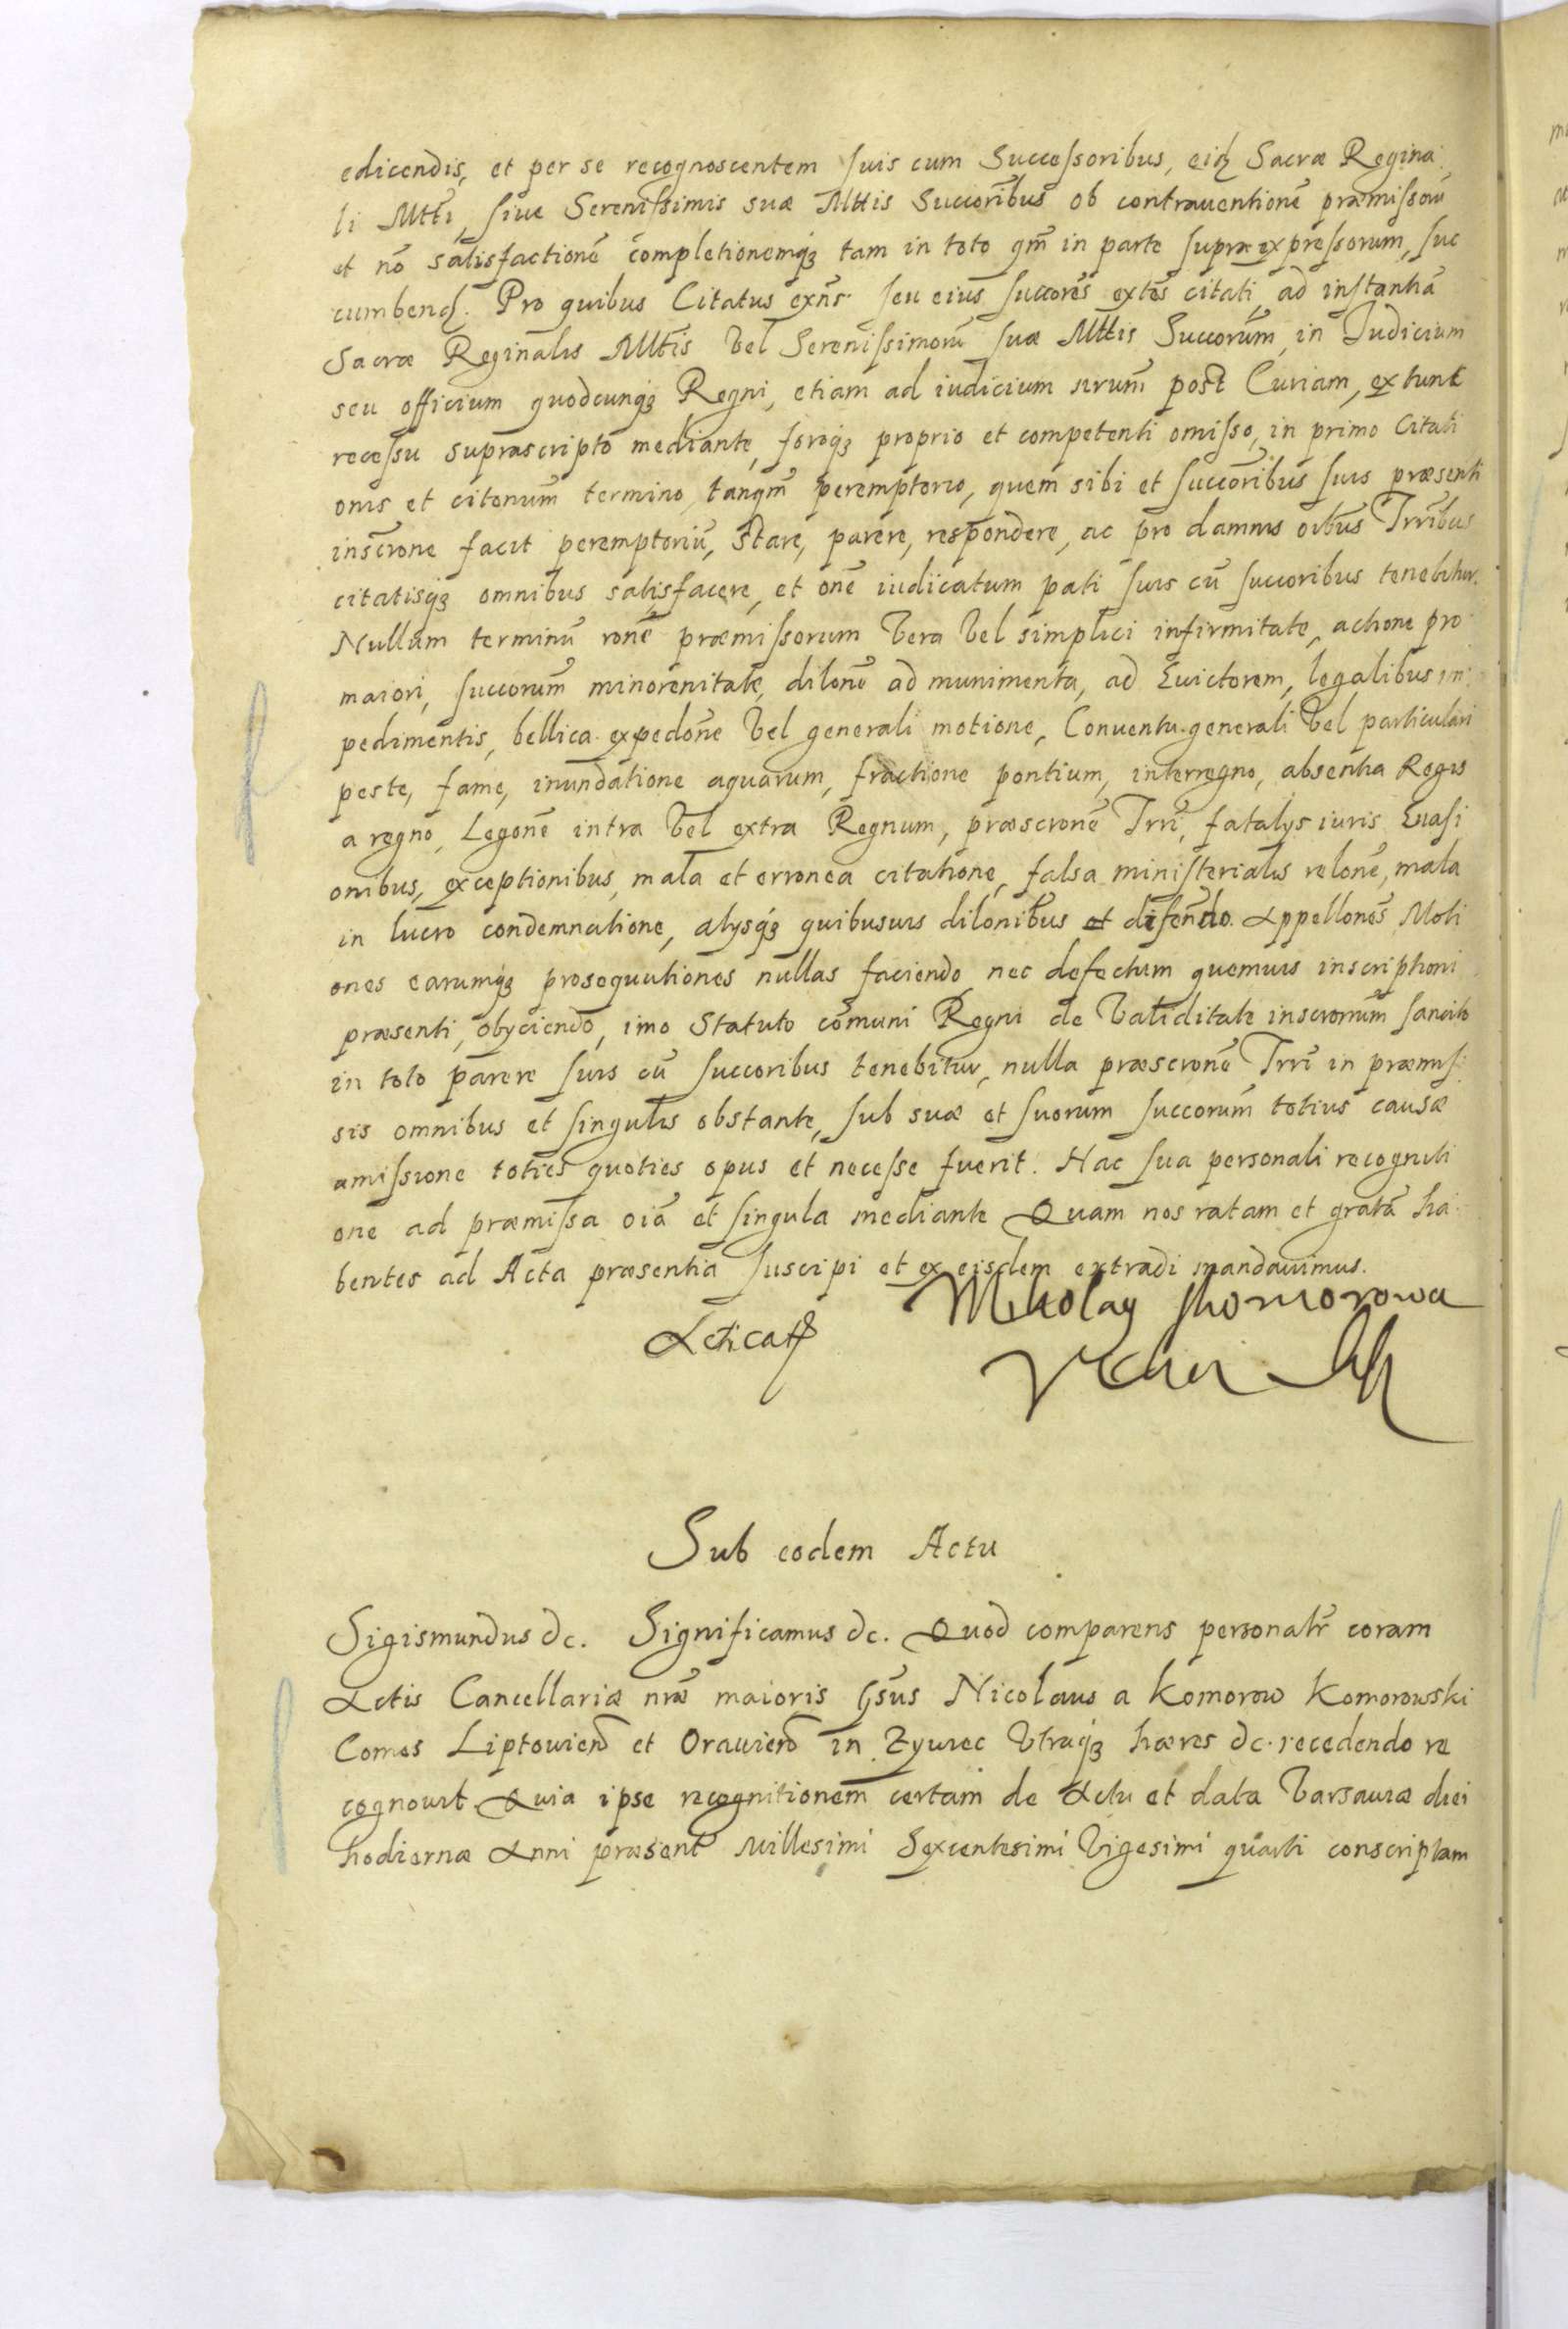 edicendis, et per se recognoscentem suis cum Successoribus, eidꝫ Sacræ Regina
li Mtti, siue Serenissimis suæ Mttis Succoribus ob contrauentionẽ præmissorũ
et nõ satisfactionẽ completionemqꝫ tam in toto qm̃ in parte supra expressorum, suc
cumbend. Pro quibus Citatus exñs seu eius succores extẽs citati ad instantiã
Sacræ Reginalis Mttis vel Serenissimorũ suæ Mttis Succorum̃, in Iudicium
seu officium quodcunqꝫ Regni, etiam ad iudicium nrum̃ post Curiam, ex tunc
recessu suprascripto mediante, foroqꝫ proprio et competenti omisso, in primo Citati
onis et citonum̃ termino, tanqm̃ peremptorio, quem sibi et succoribus suis præsenti
inscrone facit peremptoriũ, stare, parere, respondere, ac pro damnis oibus Trribus
citatisqꝫ omnibus satisfacere, et onẽ iudicatum pati suis cũ succoribus tenebitur.
Nullum terminũ ronẽ præmissorum vera vel simplici infirmitate, actione pro
maiori, succorum̃ minorenitate, dilonẽ ad munimenta, ad Euictorem, legalibus im
pedimentis, bellica expedonẽ vel generali motione, Conuentu generali vel particulari
peste, fame, inundatione aquarum, fractione pontium, interregno, absentia Regis
a regno, Legonẽ intra vel extra Regnum, præscronẽ Trri, fatalys iuris Euasi
onibus, exceptionibus, mala et erronea citatione, falsa ministerialis relonẽ, mala
in lucro condemnatione, alysqꝫ quibusuis dilonibus et difendo. Appellonẽs Moti
ones earumqꝫ prosequutiones nullas faciendo, nec defectum quemuis inscriptioni
præsenti, obyciendo, imo Statuto cõmuni Regni de validitate inscronum̃ sancito
in toto parere suis cũ succoribus tenebitur, nulla præscronẽ Trri in præmis
sis omnibus et singulis obstante, sub suæ et suorum succorum̃ totius causæ
amissione toties quoties opus et necesse fuerit. Hac sua personali recogniti
one ad præmissa oiã et singula mediante Quam nos ratam et gratã ha
bentes ad Acta præsentia suscipi et ex eisdem extradi mandauimus.
Mikolay Komorowa
Sub eodem Actu
Sigismundus ðc. Significamus ðc. Quod comparens personalr̃ coram
Actis Cancellariæ nræ maioris Gsũs Nicolaus a Komorow Komorowski
Comes Liptouien et Orauien in Zywec vtraqꝫ hæres ðc. recedendo re
cognouit. Quia ipse recognitionem certam de Actu et data Varsauiæ diei
hodiernæ Anni præsent Millesimi Sexcentesimi Vigesimi quarti conscriptam